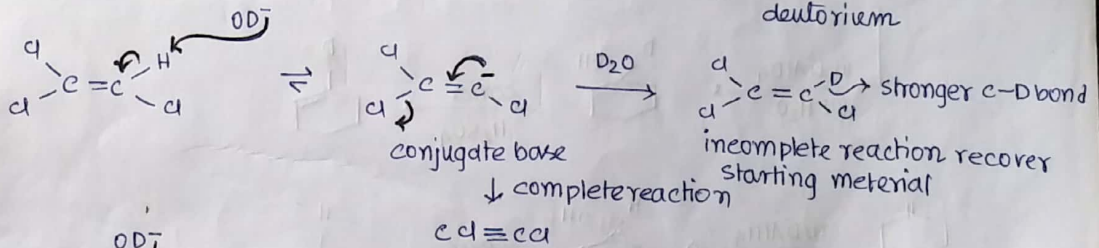 deutorium
OD⁻
Cl Cl C = C H Cl ⇌ Cl Cl C = C⁻ Cl D₂O → Cl Cl C = C D Cl → stronger C-D bond
conjugate base
incomplete reaction recover
starting meterial
↓ complete reaction
CCl≡CCl
OD⁻